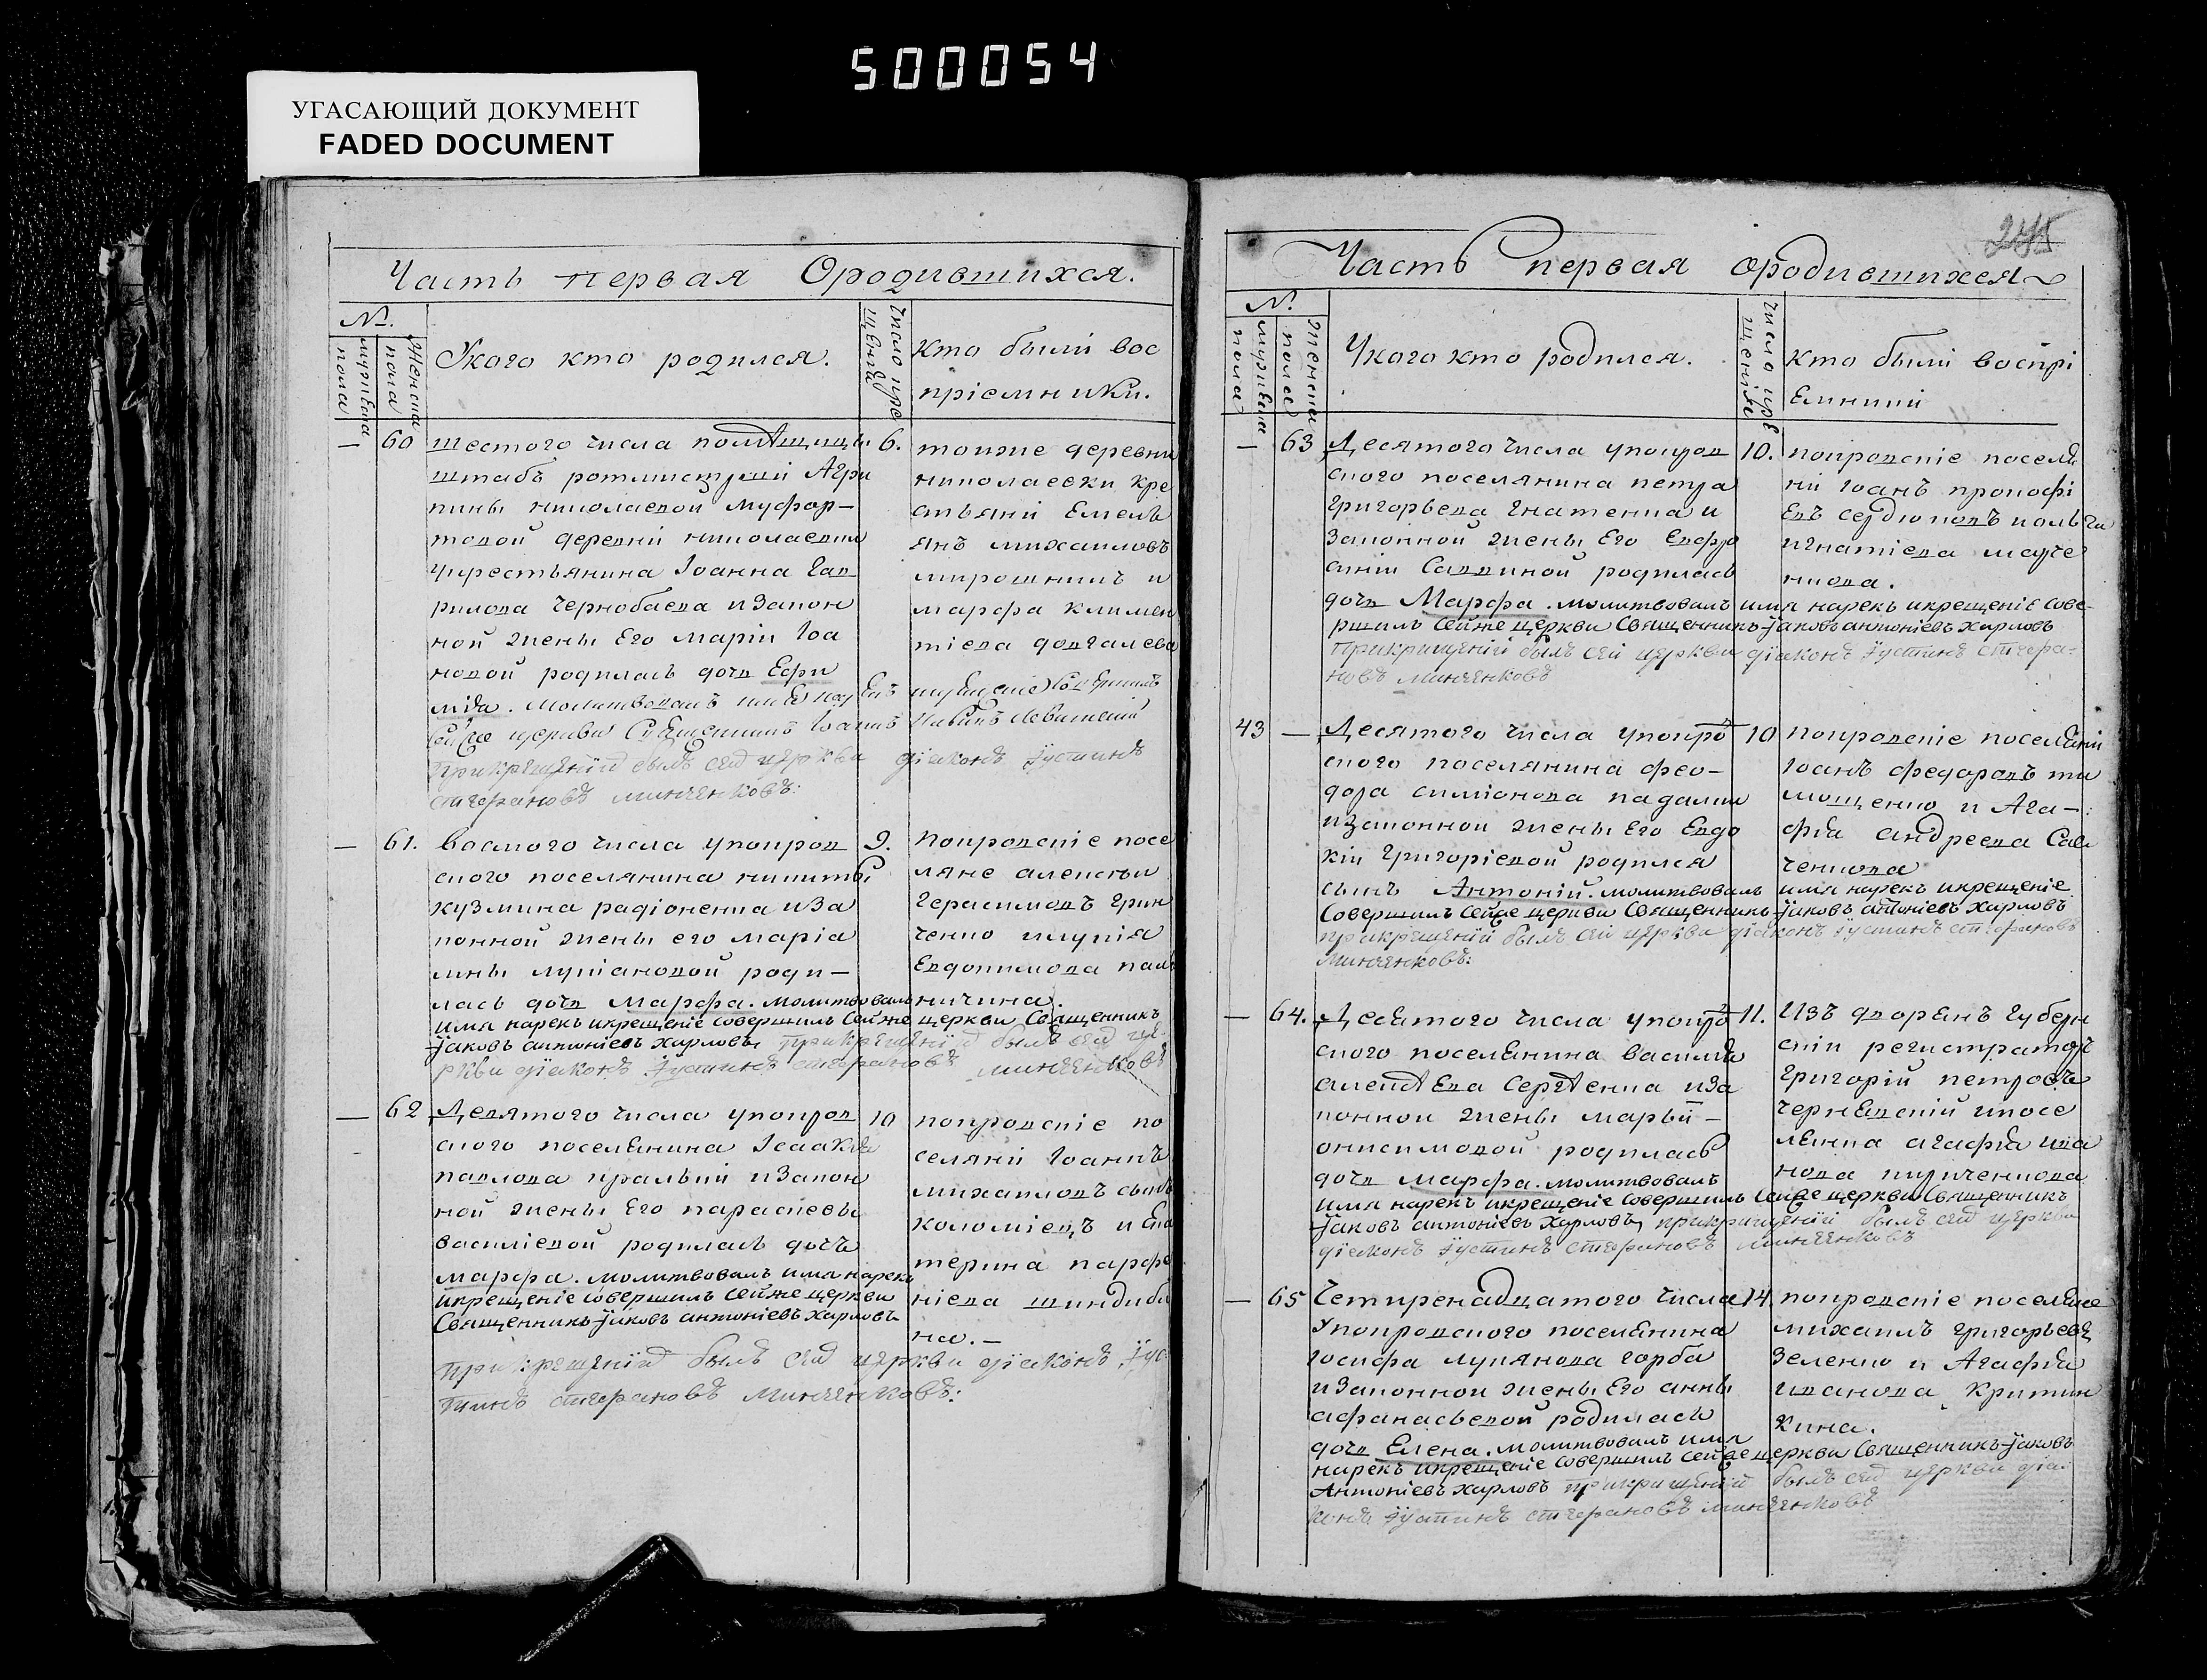 500054
УГАСАЮЩИЙ ДОКУМЕНТ
FADED DOCUMENT
Часть первая О родившихся.
№.
мужеска пола
женска пола
У кого кто родился.
число кре щения
кто были вос
пріемники.
—
60
шестого числа помѣщицы
штабъ ротмистрши Агри
пины николаевой
деревни николаевки
у крестьянина Іоанна Гав
рилова Чернобаева и закон
ной жены Его Маріи Іоа
новой родилась дочь Ефи
мія. молитвовалъ имя нарекъ и крещеніе совершилъ
сей же церкви Священникъ Іоаннъ Левитскій
при крещеніи былъ сей церкви діаконъ Іустинъ
стефановъ минченковъ:
6.
тоиже деревни
николаевки кре
стьяни Емель
янъ михаиловъ
мирошникъ и
марфа климен
тіева довгалева
—
61.
восмого числа упокров
ского поселянина никиты
кузмина радіоненка и за
конной жены его маріа
мны лукіановой роди—
лась дочь Марфа. молитвовалъ
имя нарекъ и крещеніе совершилъ сей же церкви Священникъ
Іаковъ антоніевъ харловъ, при крещеніи былъ сей це-
ркви діаконъ Іустинъ стефановъ минченковъ
9.
покровскіе посе
ляне алексѣи
Герасимовъ Грин
ченко и лукія
Евдокимова паль
ничина.
—
62
Девятого числа упокров
ского поселянина Ісаакія
павлова кравия и закон
ной жены Его параскевы
василіевой родилась дочь
марфа. молитвовалъ имя нарекъ
и крещеніе совершилъ сей же церкви
Священникъ Іаковъ антоніевъ харловъ
при крещеніи былъ сей церкви діаконъ Іус-
тинъ стефановъ минченковъ:
10
покровскіе по
селяни Іоаннъ
михаиловъ сынъ
коломіецъ и Ека
терина парфе
ніева шиндиби
на.—
245
Часть Первая о родившихся
№.
мужеска пола
женска пола
У кого кто родился.
числа кре щенія
кто были воспрі
Емники
—
63
Десятого числа упокров
ского поселянина петра
григорьева Гнатенка и
законной жены Его Евфро
синіи Саввиной родилась
дочь Марфа. молитвовалъ имя нарекъ и крещеніе сове-
ршилъ Сей же церкви Священникъ Іаковъ антоніевъ харловъ
при крещеніи былъ сей церкви діаконъ Іустинъ стефа-
новъ минченковъ
10.
покровскіе поселя
ни Іоанъ прокофі
Евъ сердюковъ
игнатіева
43
—
Десятого числа упокро
ского поселянина фео—
дора симіонова падалки
и законной жены Его Евдо
кіи григоріевой родился
сынъ Антоній. молитвовалъ имя нарекъ и крещеніе
Совершилъ Сей же церкви Священникъ Іаковъ антоніевъ харловъ
при крещеніи былъ сей церкви діаконъ Іустинъ стефановъ
минченковъ:
10
покровскіе поселяни
Іоанъ федоровъ ти
мощенко и Ага—
фія андреева Сав
ченкова
—
64.
Десятого числа упокро
ского поселянина василія
алексѣева Сергѣенка и за
конной жены марьи—
онисимовой родилась
дочь марфа. молитвовалъ
имя нарекъ и крещеніе совершилъ Сей же церкви Священникъ
Іаковъ антоніевъ харловъ, при крещеніи былъ сей церкви
діаконъ Іустинъ стефановъ минченковъ
11.
Изъ дворянъ Губерн
скіи регистраторъ
григорій петровъ
чернявскій и посе
лянка агафія ива
нова кириченкова
—
65
Четиренадцатого числа
упокровского поселянина
Іосифа лукянова горба
и законной жены Его анны
афанасьевой родилась
дочь Елена. молитвовалъ имя
нарекъ и крещеніе совершилъ Сей же церкви Священникъ Іаковъ
Антоніевъ харловъ при крещеніи былъ сей церкви діа-
конъ Іустинъ стефановъ минченковъ
14.
покровскіе поселяне
михаилъ григорьевъ
Зеленко и Агафія
иванова Критин
кина.